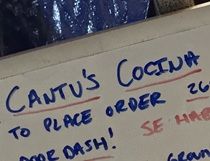 CANTU'S COCINA
TO PLACE ORDER 26
DOOR DASH! SE HAB